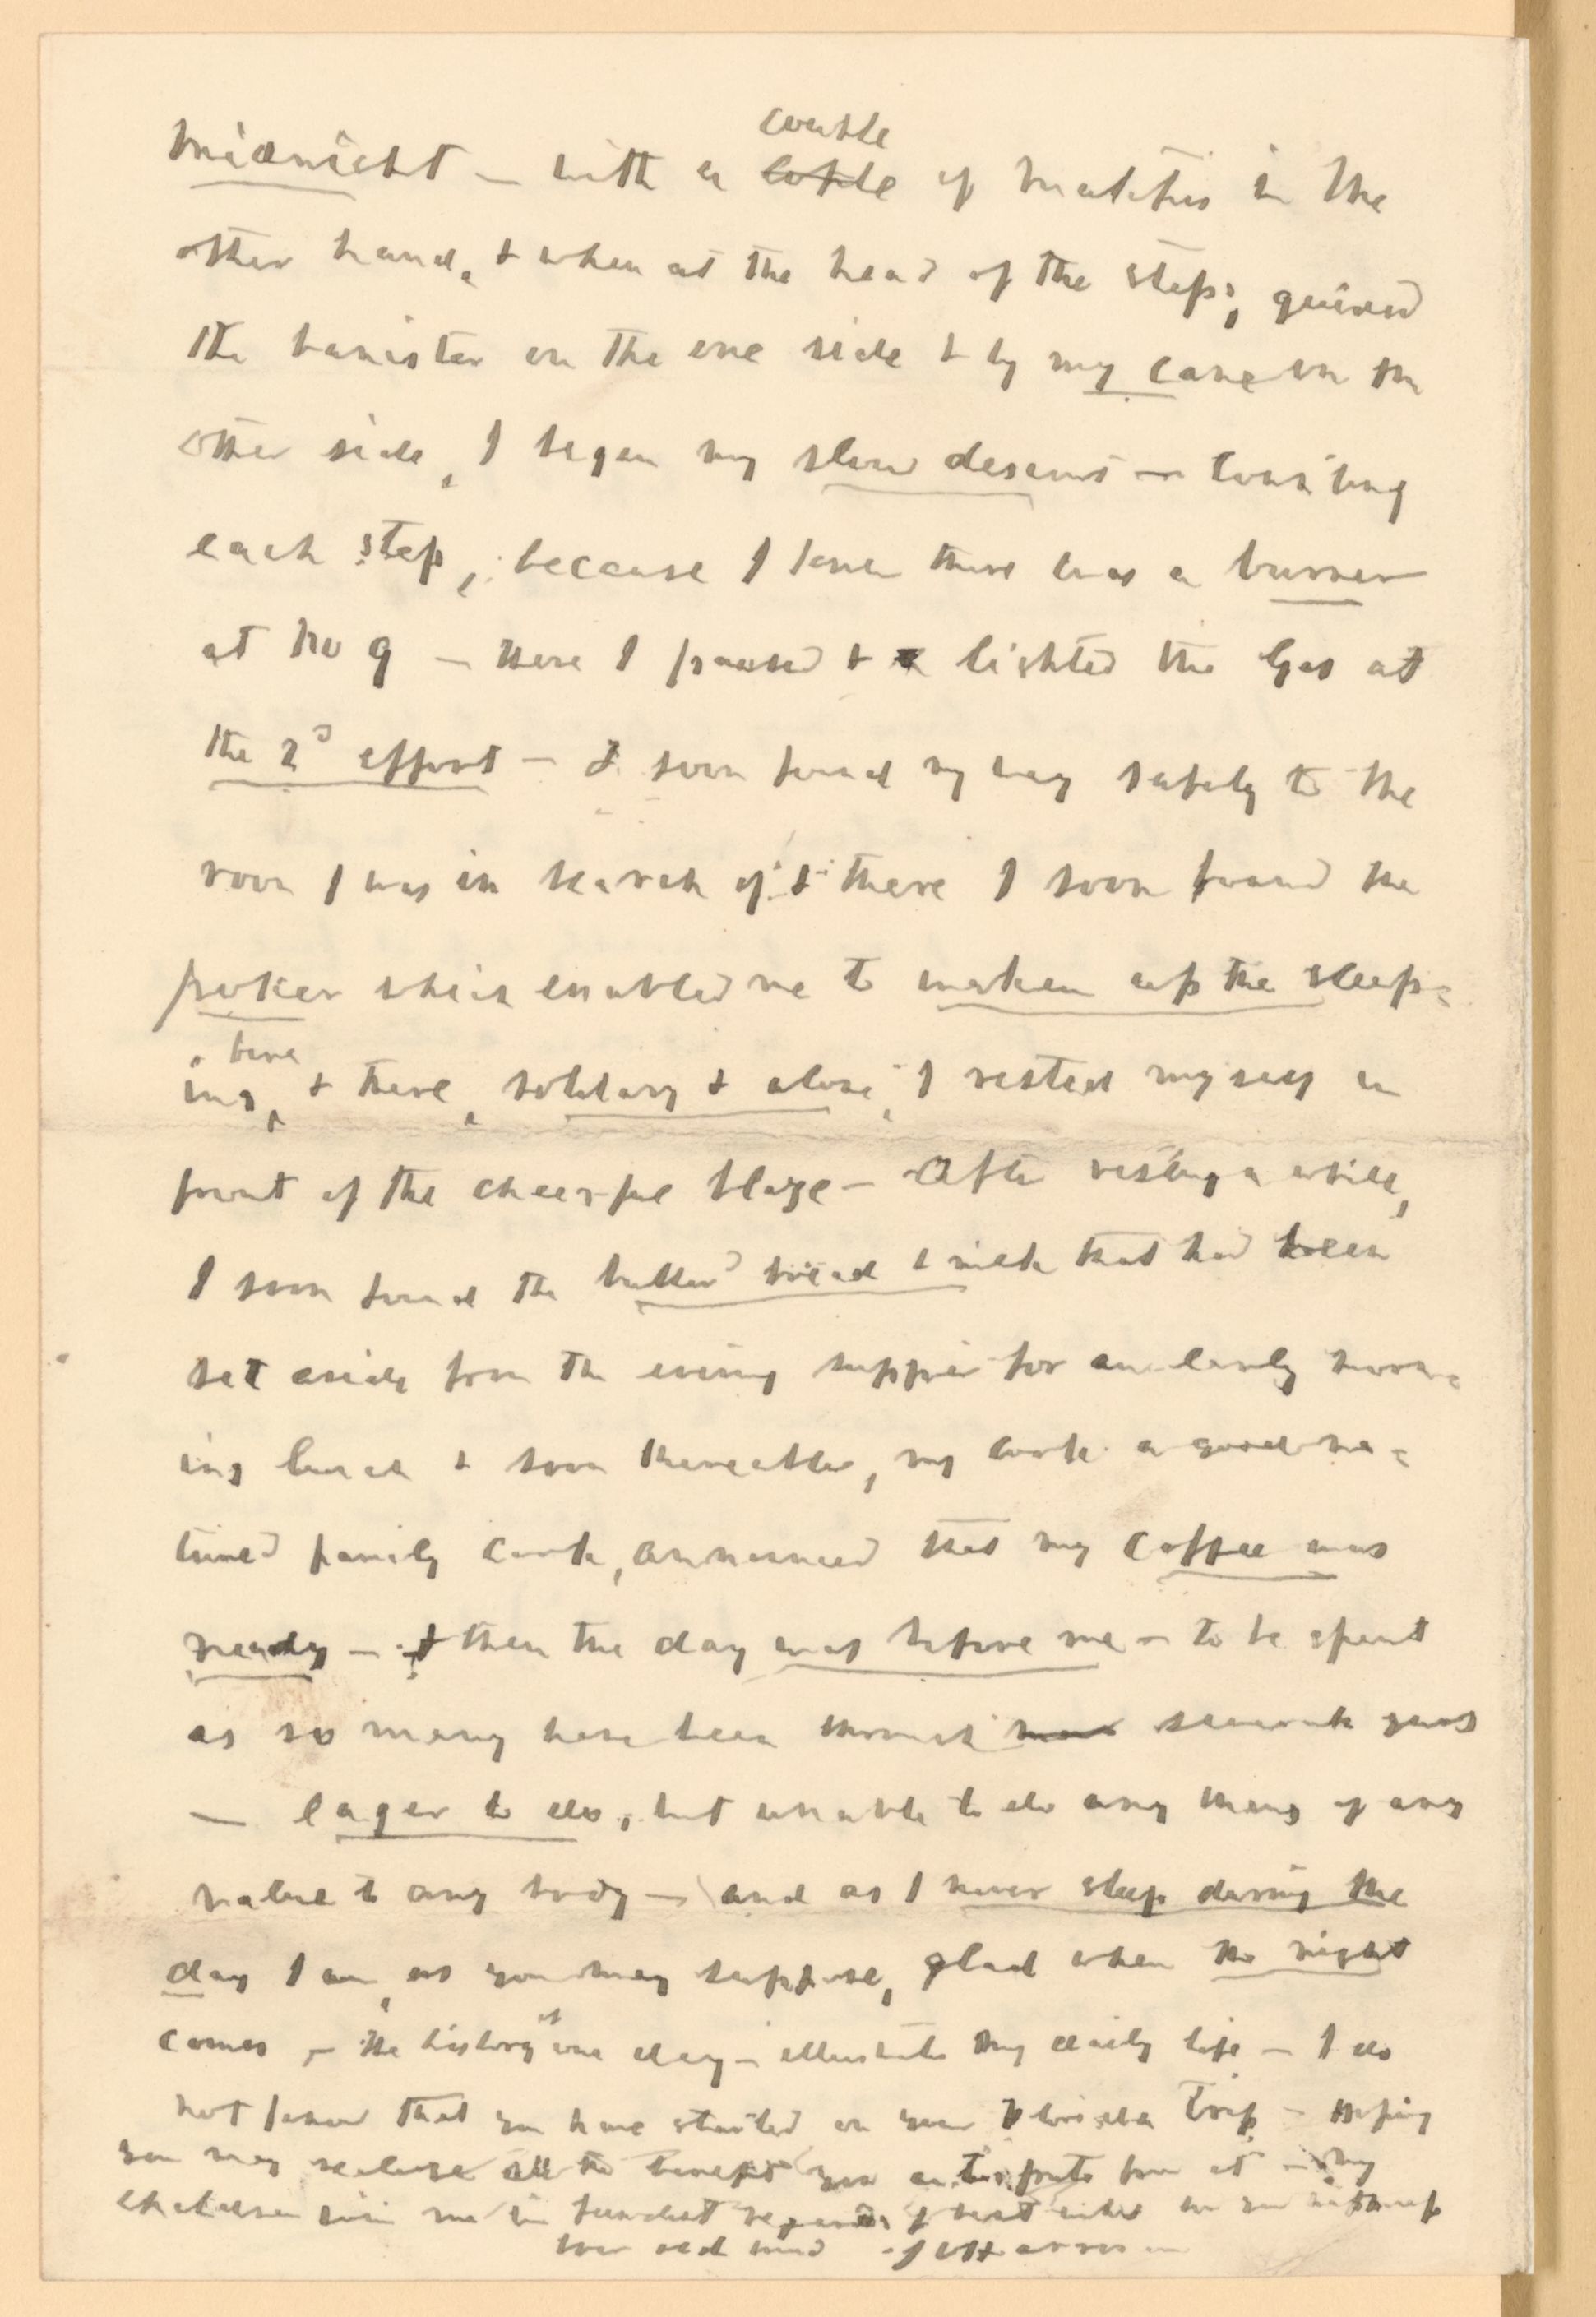 couple
midnight – with a couple of matches in the
other hand, & when at the head of the steps, guided
the banister on the one side & by my cane on the
other side, I began my slow descent – counting
each step, because I knew there was a burner
at No 9 – there I paused & lighted the Gas at
the 2d effort – I soon found my way safely to the
room I was in search of & there I soon found the
poker which enabled me to waken up the sleep=
ing fire & there, solitary & alone, I rested myself in
front of the cheerful blaze – After resting a while,
I soon found the butter bread & milk that had been
set aside from the evening supper for an early morn=
ing lunch & soon thereafter, my cook a good na=
tured family cook, announced that my coffee was
ready – & then the day was before me – to be spent
as so many have been through several years
– eager to do, but unable to do any thing of any
value to any body – and as I never sleep during the
day I am, as you may suppose, glad when the night
comes – The history of one day – illustrates my daily life – I do
not know that you have started on your Florida Trip – Hoping
you may realize all the benefit you anticipate from it – my
children join me in fondest regards & best wishes
your old friend